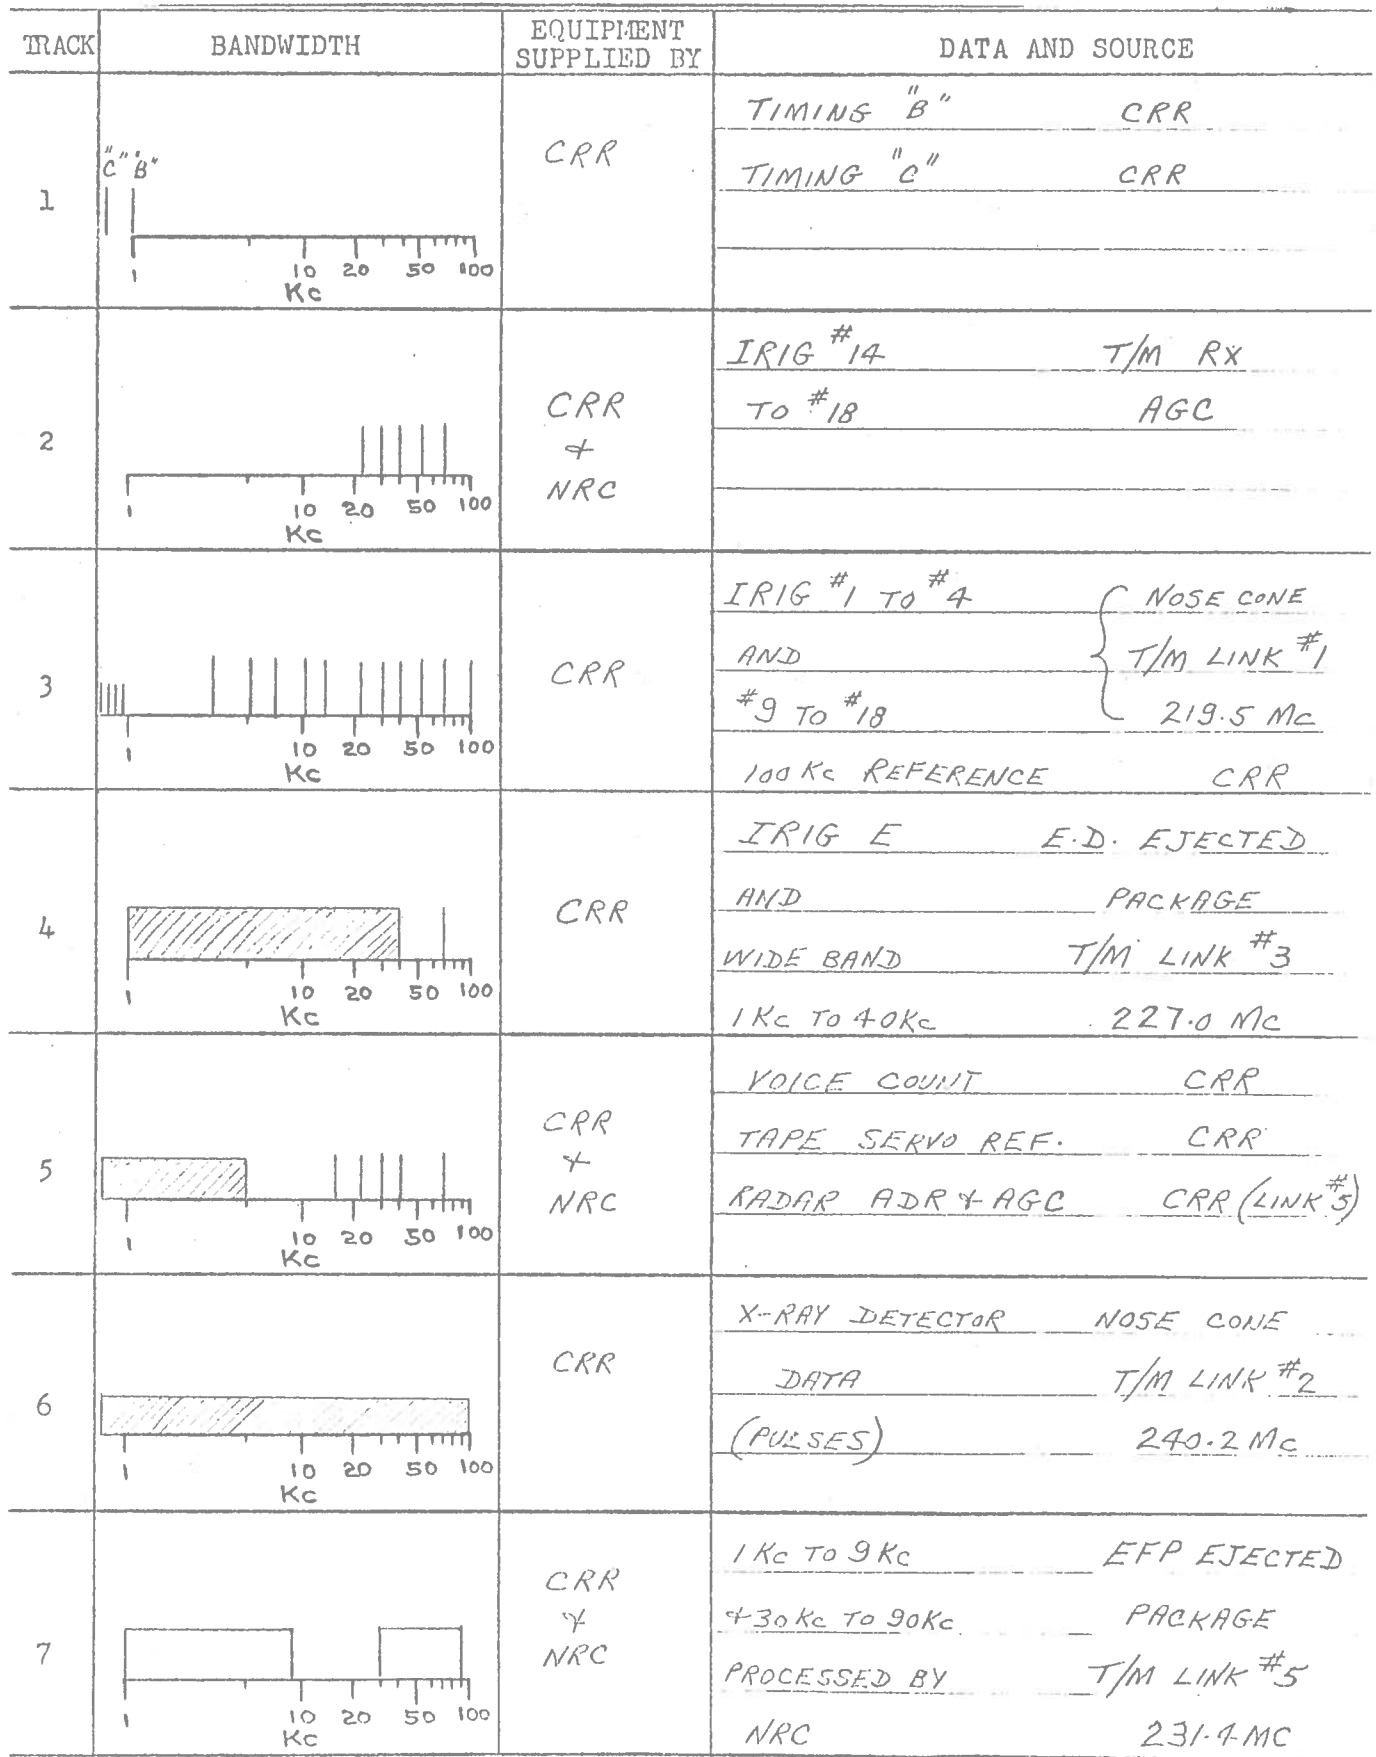 TRACK BANDWIDTH EQUIPMENT SUPPLIED BY DATA AND SOURCE
1
"C" "B"
1 10 20 50 100
Kc
CRR
TIMING "B" CRR
TIMING "C" CRR
2
1 10 20 50 100
Kc
CRR
&
NRC
IRIG #14 T/M RX
TO #18 AGC
3
1 10 20 50 100
Kc
CRR
IRIG #1 TO #4 NOSE CONE
AND T/M LINK #1
#9 TO #18 219.5 Mc
100 Kc REFERENCE CRR
4
1 10 20 50 100
Kc
CRR
IRIG E E.D. EJECTED
AND PACKAGE
WIDE BAND T/M LINK #3
1 Kc TO 40Kc 227.0 Mc
5
1 10 20 50 100
Kc
CRR
&
NRC
VOICE COUNT CRR
TAPE SERVO REF. CRR
RADAR ADR & AGC CRR (LINK #5)
6
1 10 20 50 100
Kc
CRR
X-RAY DETECTOR NOSE CONE
DATA T/M LINK #2
(PULSES) 240.2 Mc
7
1 10 20 50 100
Kc
CRR
&
NRC
1 Kc TO 9 Kc EFP EJECTED
&30Kc TO 90Kc PACKAGE
PROCESSED BY T/M LINK #5
NRC 231.4 MC